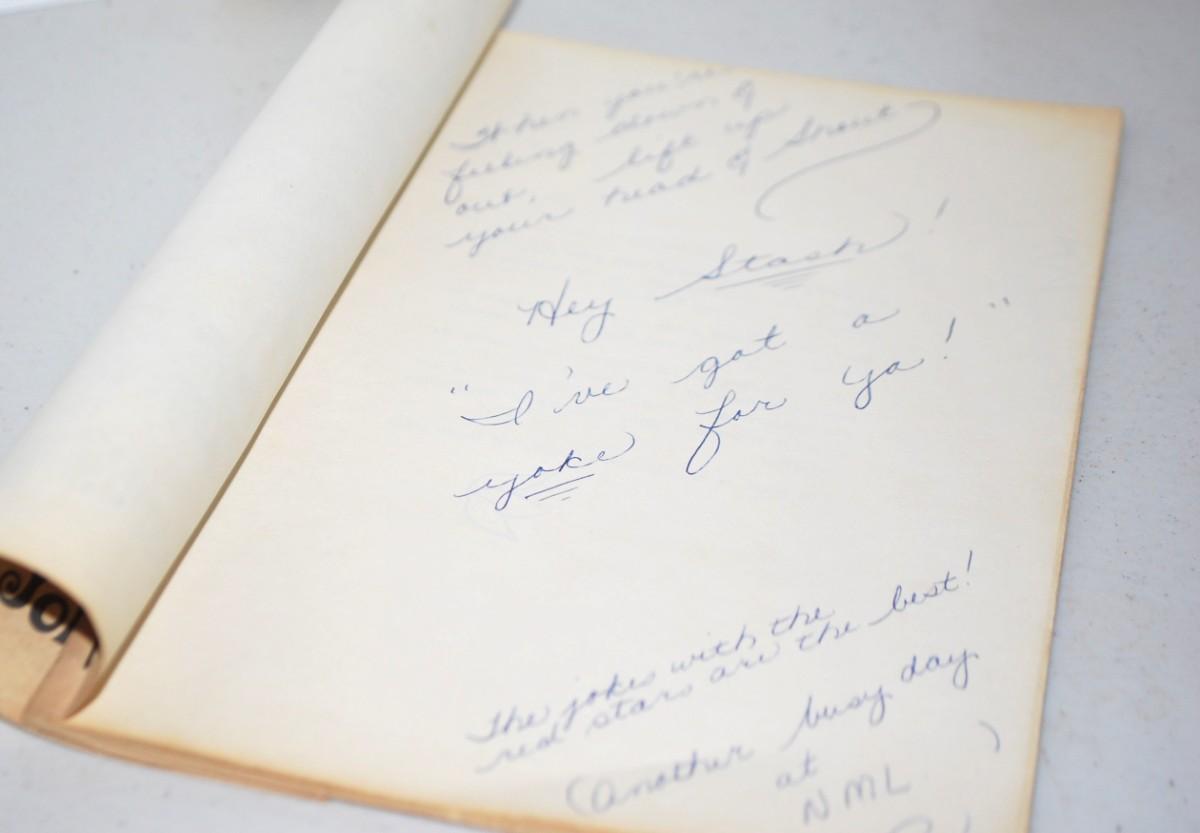 When you're
feeling down &
out, lift up
your head & Shout
Hey Stash!
"I've got a
yoke for ya!"
The jokes with the
red stars are the best!
(Another busy day
at
NML
)
JO